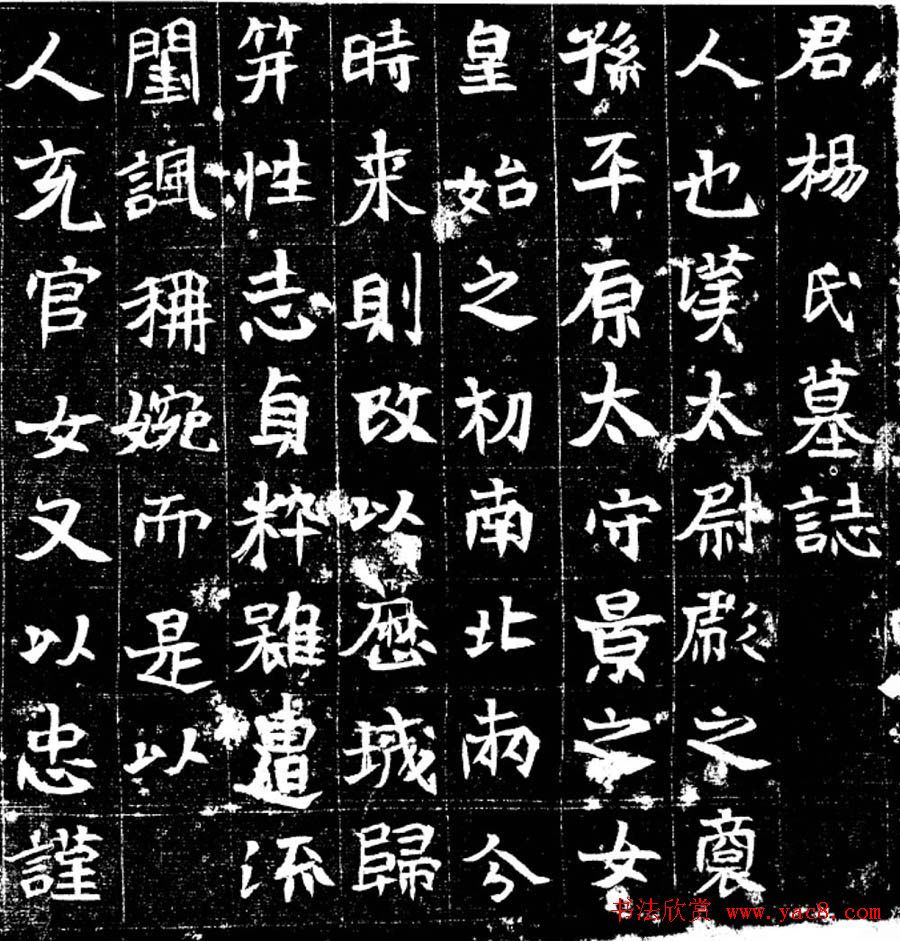 君楊氏墓誌
人也漢太尉彪之裔
孫平原太守景之女
皇始之初南北兩分
時来則改以歷城歸
笄性志貞粹雖遭流
閨諷稱婉而是以
人充官女又以忠謹
书法欣赏 www.yac8.com